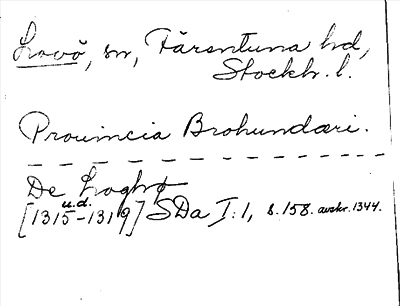 Lovö, sn, Färentuna hd,
Stockh. l.
Prouincia Brohundæri.
De Loghø
u.d.
[1315-1319] SDa I:1, s. 158. avskr. 1344.